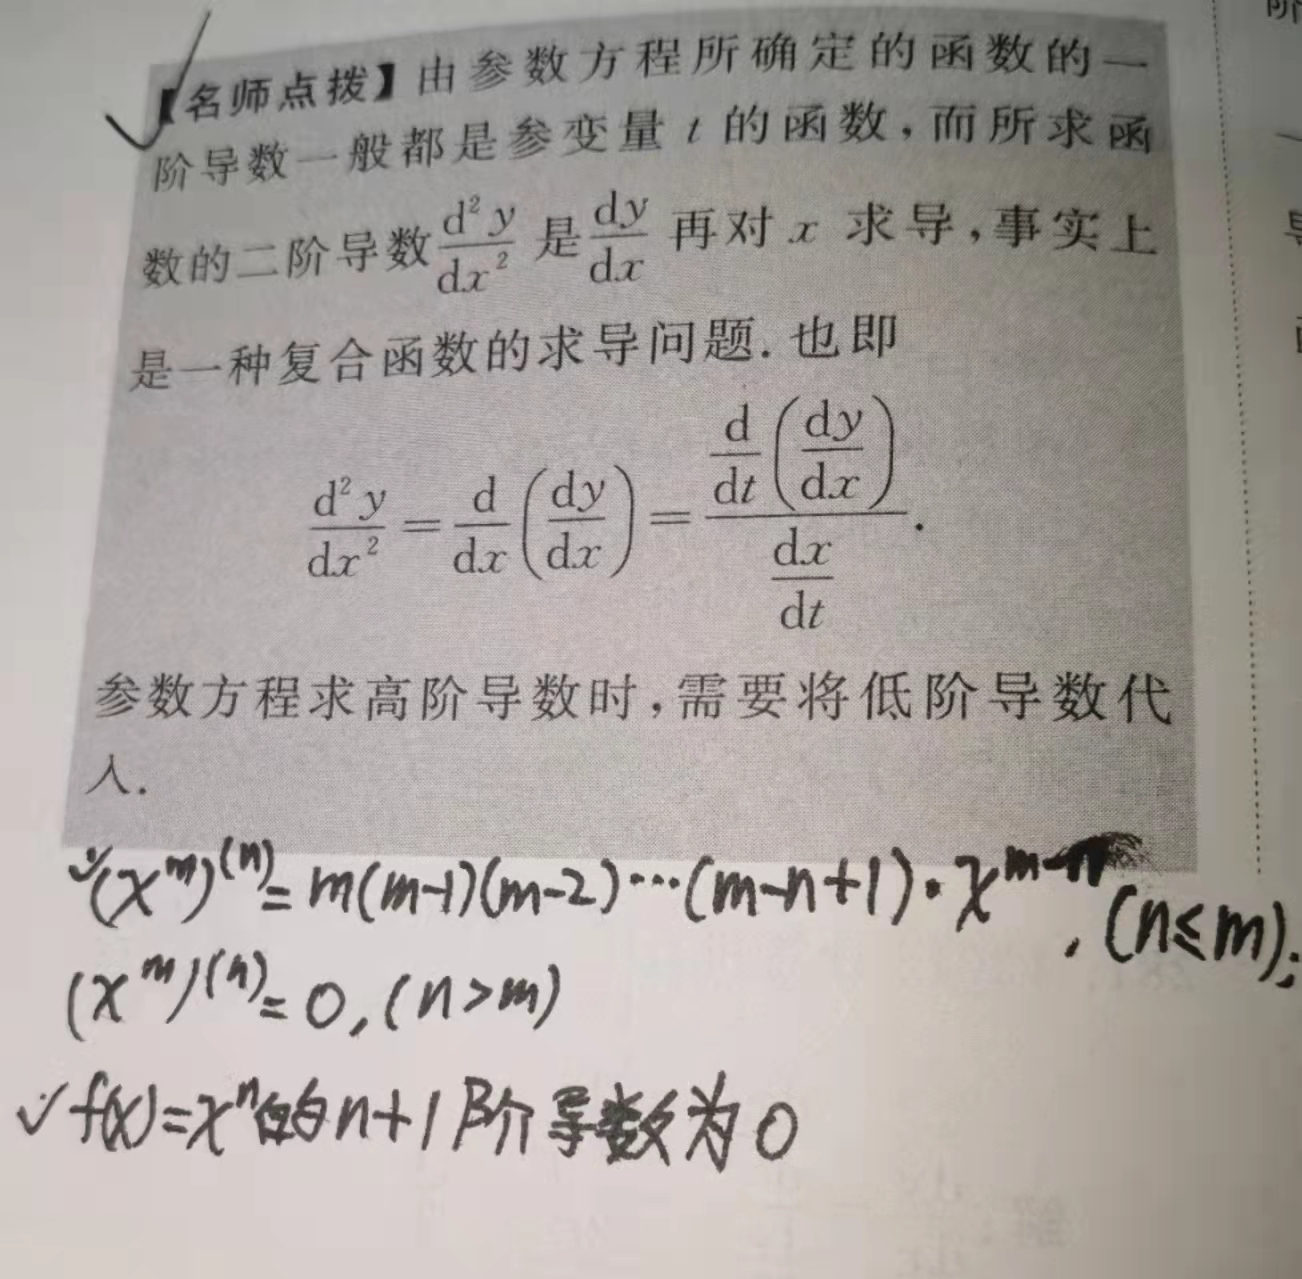 【名师点拨】由参数方程所确定的函数的一
阶导数一般都是参变量 t 的函数,而所求函
数的二阶导数 d²y/dx² 是 dy/dx 再对 x 求导,事实上
是一种复合函数的求导问题. 也即
d²y/dx² = d/dx (dy/dx) = (d/dt (dy/dx)) / (dx/dt).
参数方程求高阶导数时,需要将低阶导数代
入.
(x^m)^(n) = m(m-1)(m-2)…(m-n+1)·x^(m-n), (n≤m);
(x^m)^(n) = 0, (n>m)
f(x)=x^n的n+1阶导数为0